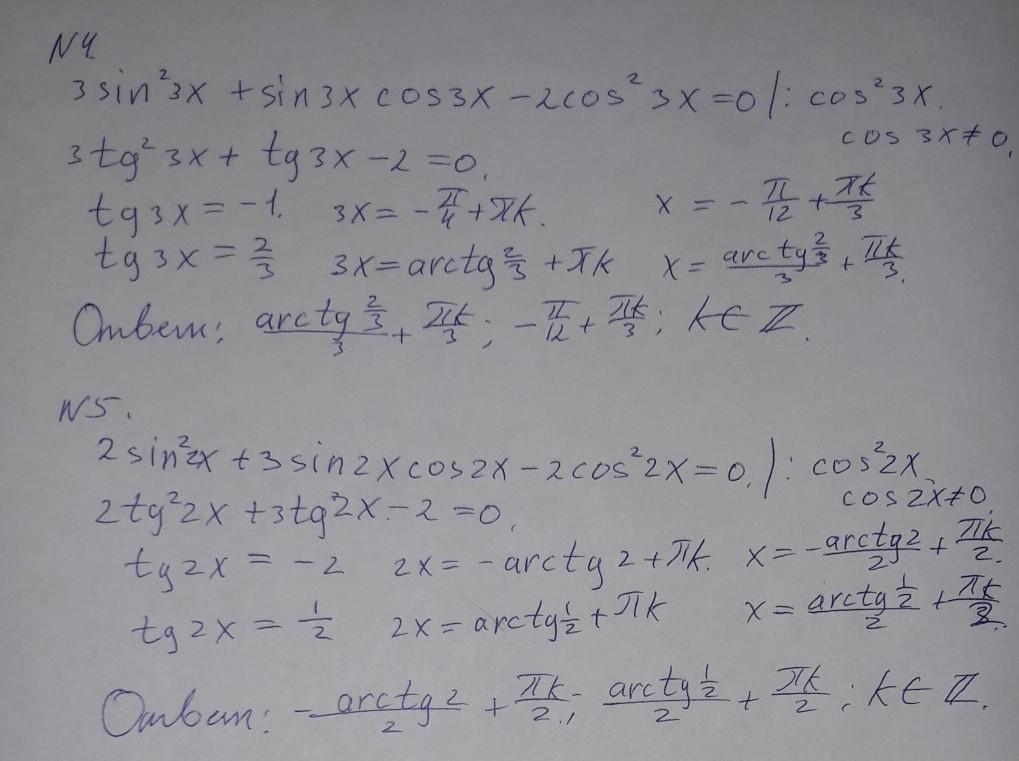 N4.
3 sin²3x + sin3x cos3x − 2cos²3x = 0 /: cos²3x.
cos 3x ≠ 0.
3tg²3x + tg3x − 2 = 0.
tg3x = −1. 3x = −π/4 + πk. x = −π/12 + πk/3
tg3x = 2/3 3x = arctg 2/3 + πk x = (arctg 2/3)/3 + πk/3.
Ответ: (arctg 2/3)/3 + πk/3; −π/12 + πk/3; k ∈ Z.
N5.
2 sin²2x + 3 sin2x cos2x − 2cos²2x = 0. /: cos²2x.
cos2x ≠ 0.
2tg²2x + 3tg2x − 2 = 0.
tg2x = −2 2x = −arctg 2 + πk. x = −(arctg 2)/2 + πk/2.
tg2x = 1/2 2x = arctg 1/2 + πk x = (arctg 1/2)/2 + πk/2.
Ответ: −(arctg 2)/2 + πk/2; (arctg 1/2)/2 + πk/2; k ∈ Z.